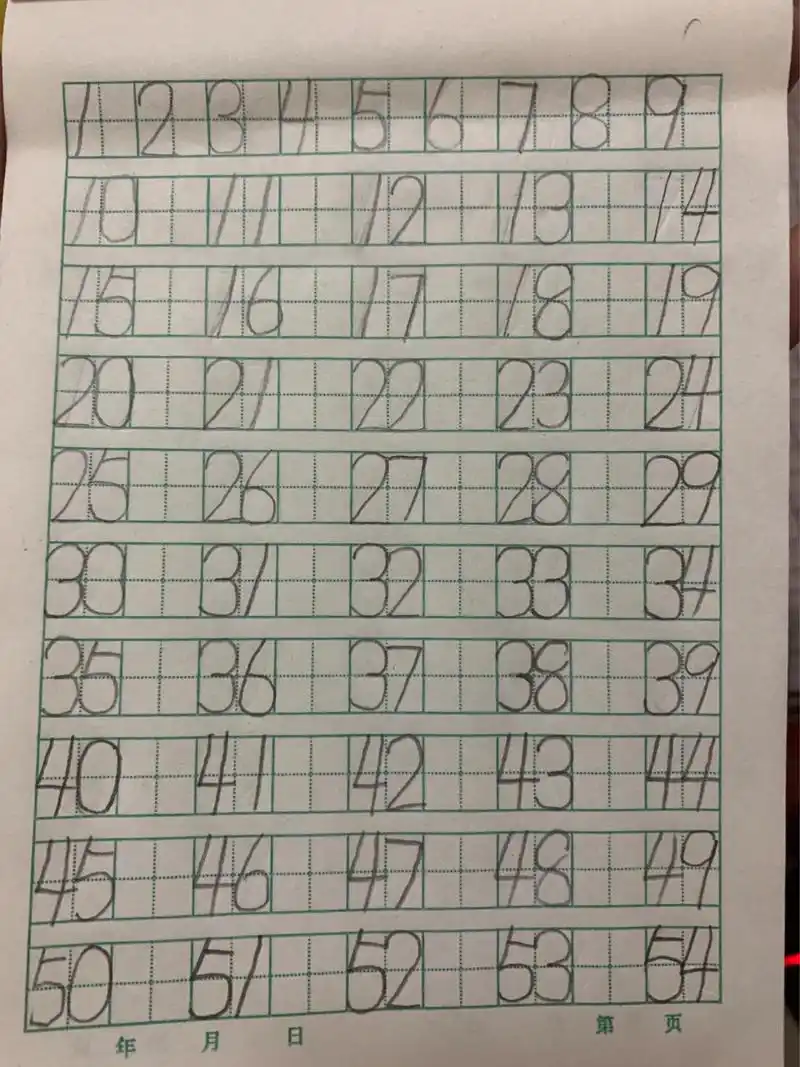 1 2 3 4 5 6 7 8 9
10 11 12 13 14
15 16 17 18 19
20 21 22 23 24
25 26 27 28 29
30 31 32 33 34
35 36 37 38 39
40 41 42 43 44
45 46 47 48 49
50 51 52 53 54
年 月 日 第 页